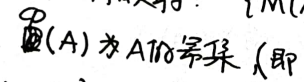 𝒫(A)为A的幂集(即